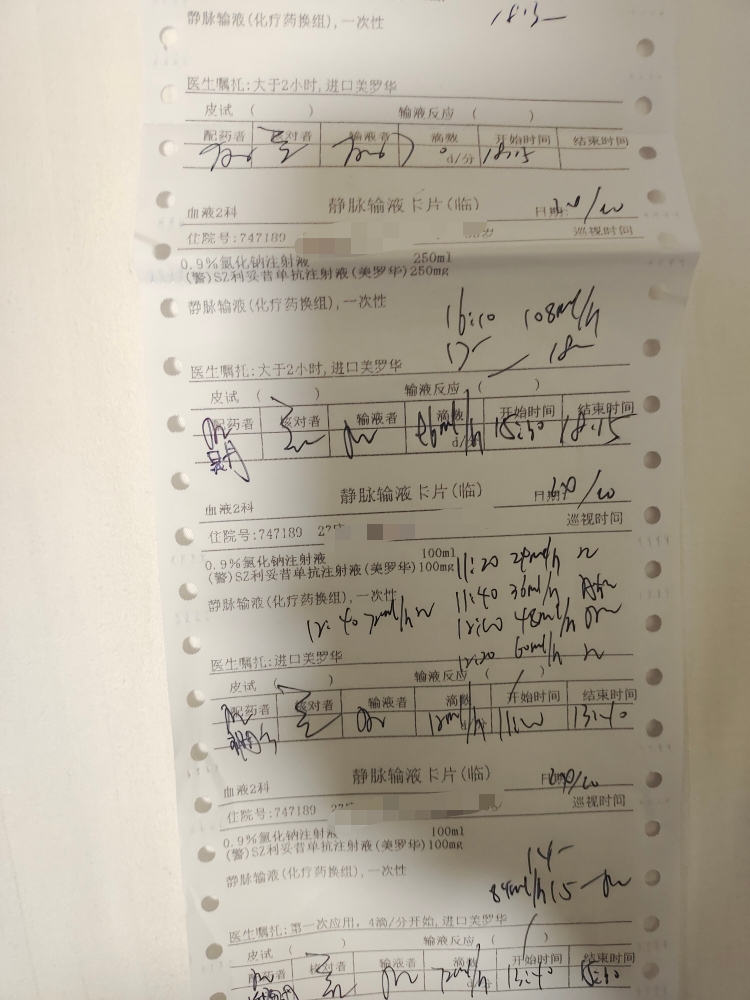 静脉输液(化疗药换组),一次性
医生嘱托:大于2小时,进口美罗华
皮试 ( ) 输液反应 ( )
配药者 核对者 输液者 滴数 开始时间 结束时间
d/分 18:15
静脉输液卡片(临)
血液2科 日期:
住院号:747189 巡视时间
0.9%氯化钠注射液 250ml
(警)SZ利妥昔单抗注射液(美罗华)250mg
静脉输液(化疗药换组),一次性
16:10 108ml/h
17- 18-
医生嘱托:大于2小时,进口美罗华
皮试 ( ) 输液反应 ( )
配药者 核对者 输液者 滴数 开始时间 结束时间
15:30 18:15
静脉输液卡片(临)
血液2科 日期
住院号:747189 巡视时间
0.9%氯化钠注射液 100ml
(警)SZ利妥昔单抗注射液(美罗华)100mg
11:20 24ml/h
静脉输液(化疗药换组),一次性
11:40 36ml/h
12:00 48ml/h
12:40 72ml/h
12:20 60ml/h
医生嘱托:进口美罗华
皮试 ( 输液反应 (
配药者 核对者 输液者 滴数 开始时间 结束时间
12ml/h 11:00 13:40
静脉输液卡片(临)
血液2科
住院号:747189 巡视时间
0.9%氯化钠注射液 100ml
(警)SZ利妥昔单抗注射液(美罗华)100mg
静脉输液(化疗药换组),一次性
14-
84ml/h 15-
医生嘱托:第一次应用,4滴/分开始,进口美罗华
皮试 ( ) 输液反应 (
配药者 核对者 输液者 滴数 开始时间 结束时间
72ml/h 13:40 15:30